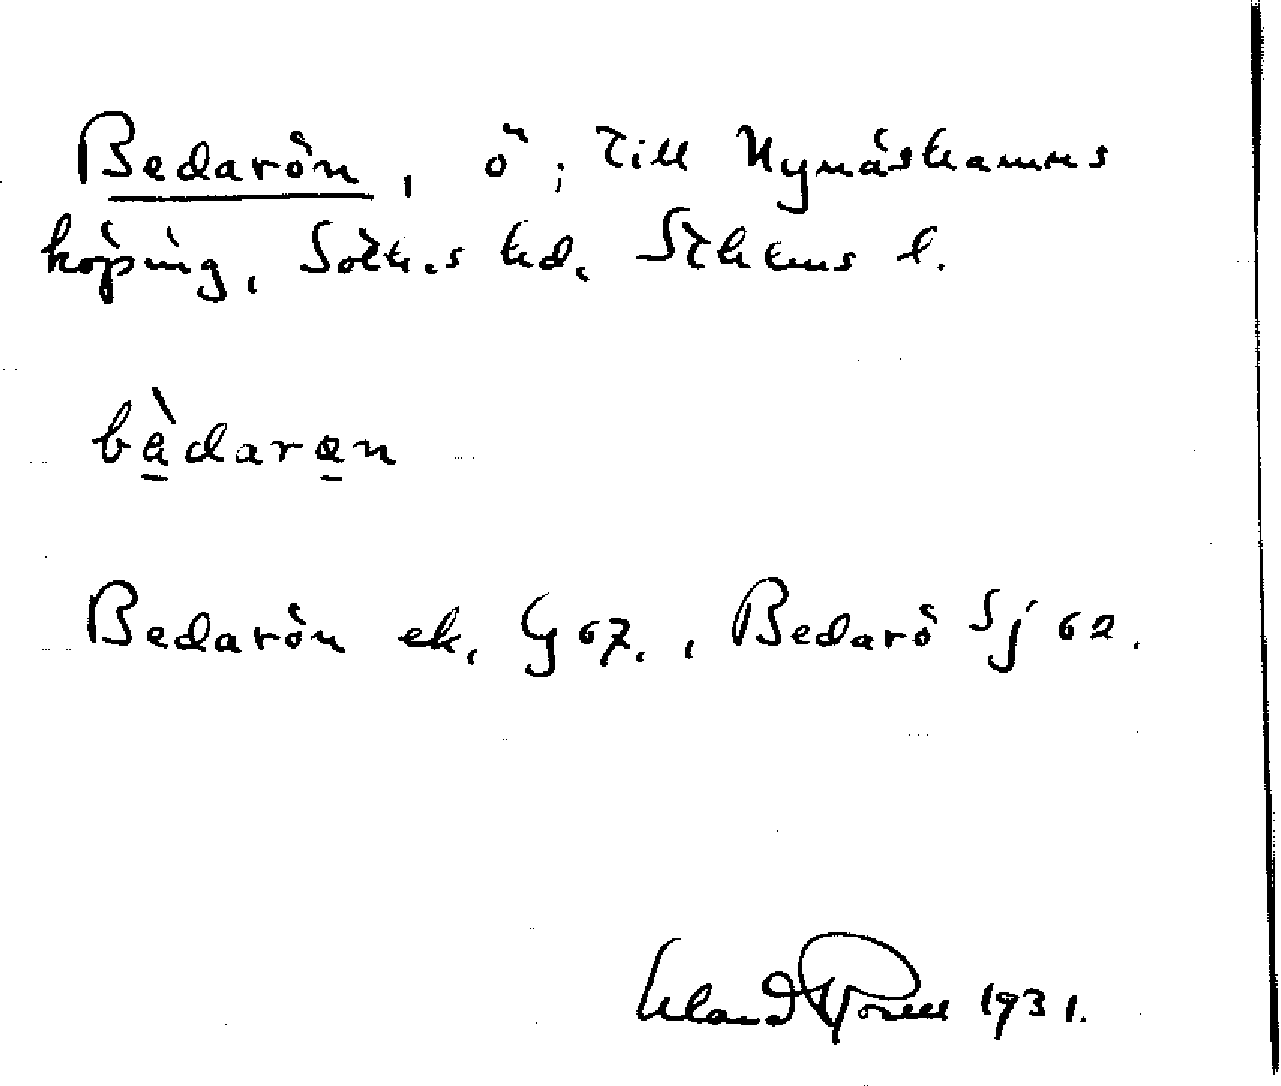 Bedarön, ö; till Nynäshamns
köping, Soth.s hd, Sthlms l.
bèdaran
Bedarön ek, G 67., Bedarö Sj 62.
1931.